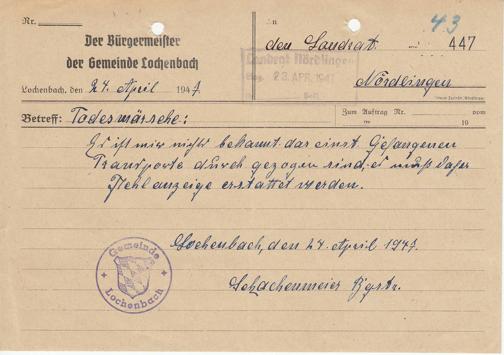 Nr.
An
43
Der Bürgermeister
der Gemeinde Lochenbach
den Landrat
447
Landrat Nördlingen
Eing. 23. APR. 1947
Nördlingen
Lochenbach, den 24. April 1947.
Betreff: Todesmärsche:
Zum Auftrag Nr. vom
19
Es ist mir nichts bekannt das einst. Gefangenen
Transporte durch gezogen sind, es muß daher
Fehlanzeige erstattet werden.
Lochenbach, den 24 April 1947.
Schachenmeier Bgstr.
Gemeinde
Lochenbach